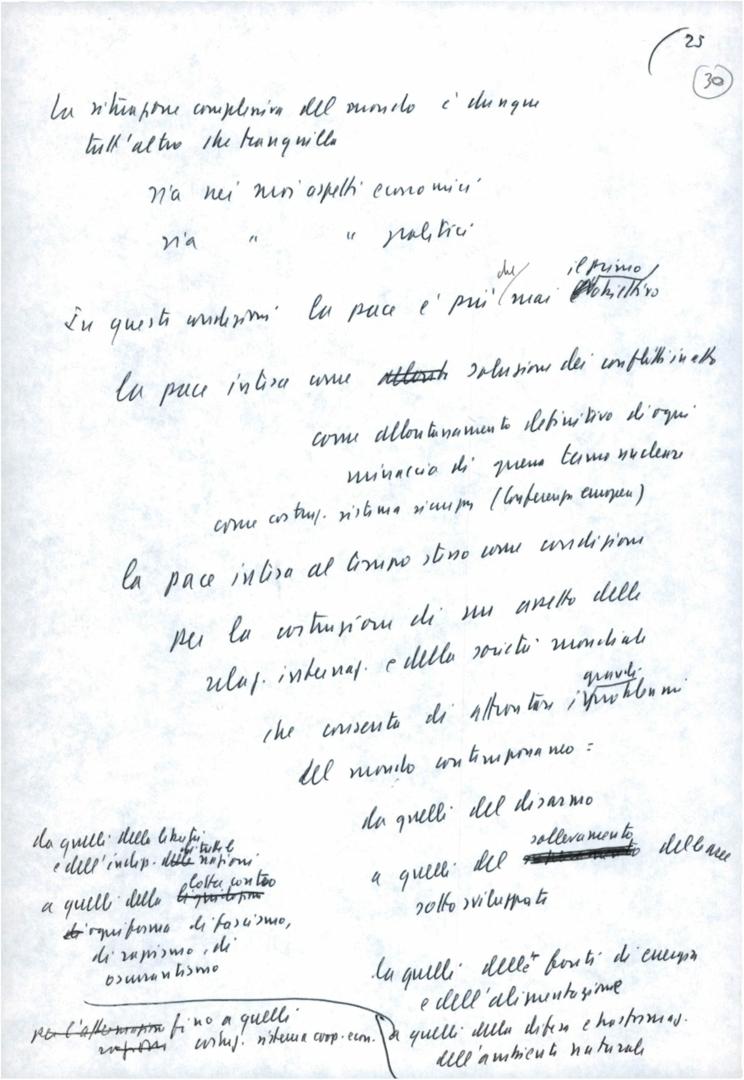 25
30
La situazione complessiva del mondo è dunque
tutt'altro che tranquilla
sia nei suoi aspetti economici
sia " " politici
In queste condizioni la pace è più che mai il primo obiettivo
la pace intesa come soluzione dei conflitti in atto
come allontanamento definitivo di ogni
minaccia di guerra termonucleare
come costruz. sistema sicurezza (Conferenza europea)
la pace intesa al tempo stesso come condizione
per la costruzione di un assetto delle
relaz. internaz. e della società mondiale
che consenta di affrontare i gravi problemi
del mondo contemporaneo:
da quelli del disarmo
a quelli del sollevamento delle aree
sotto sviluppate
da quelli delle fonti di energia
e dell'alimentazione
a quelli della difesa e
dell'ambiente naturale
da quelli della libertà
e dell'indip. di tutte le nazioni
a quelli della lotta contro
ogni forma di fascismo,
di razzismo, di
oscurantismo
fino a quelli
costruz. sistema coop. econ.